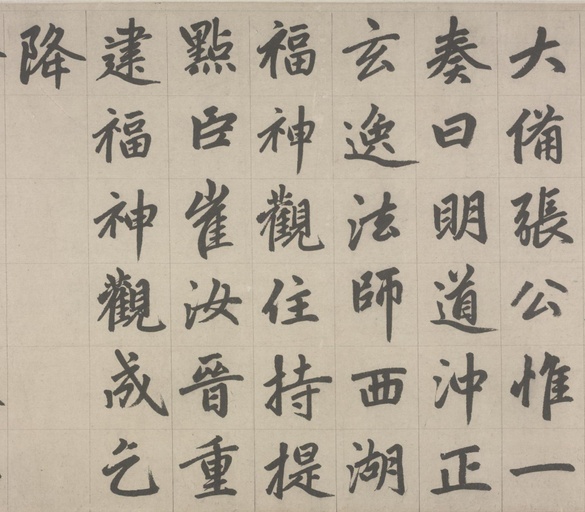 大備張公惟一
奏曰明道沖正
玄逸法師西湖
福神觀住持提
點臣崔汝晉重
建福神觀成乞
降